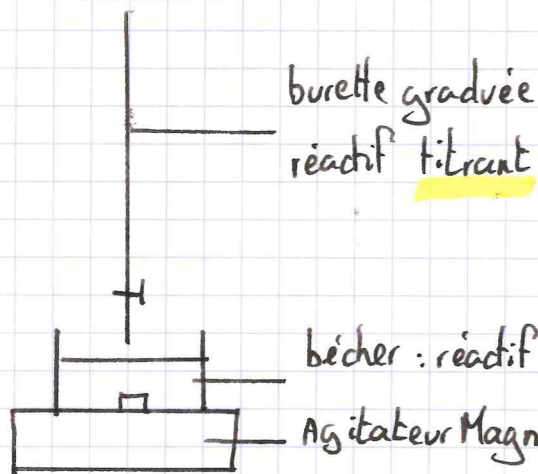 burette graduée
réactif titrant
bécher : réactif
Agitateur Magn